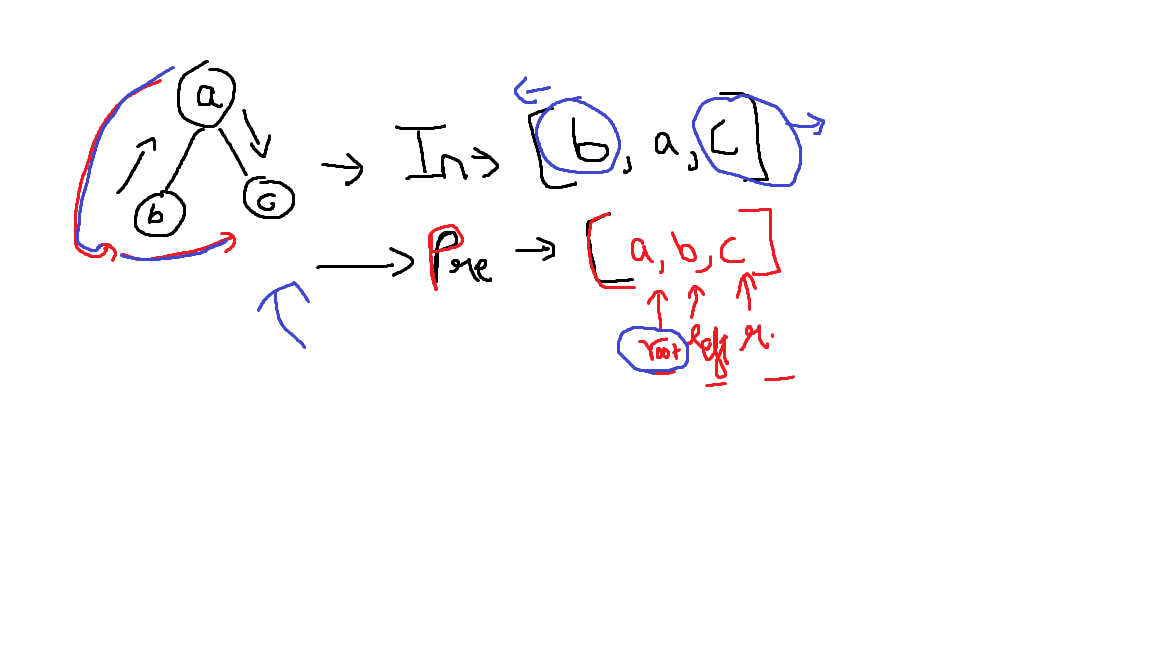 a
b c
In [b, a, c]
Pre [a, b, c]
root left r.